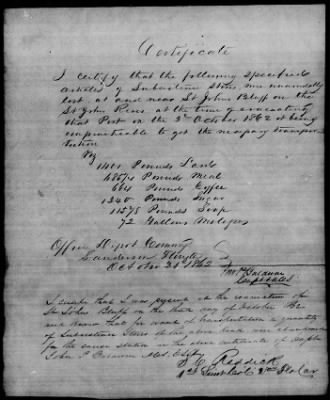 Certificate
I certify that the following specified
articles of Subsistence Stores, were unavoidably
lost, at and near St Johns Bluff on the
St John River, at the time of evacuating
that Post on the 3d October 1862 it being
impracticable to get the necessary transpor
tation
Viz
1400 Pounds Lard
Pounds Meal
664 Pounds Coffee
1240 Pounds Sugar
11375 Pounds Soap
72 Gallons Molasses
Office Depot
Sanderson Florida
October 31st 1862
I certify that I was present at the evacuation of
St Johns Bluff on the third day of October 62
and know that for want of transportation a quantity
of Subsistence Stores of the above kind were abandoned
for the reason stated in the above certificate of Capt
John P
Reddick
1st Lieutenant 2nd Fla Cav